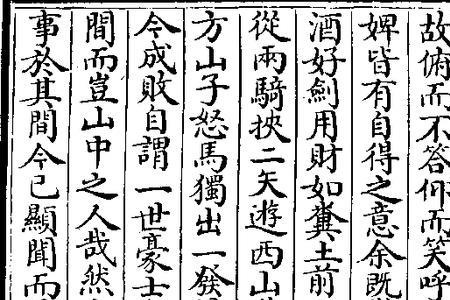 故俯而不答仰而笑呼
婢皆有自得之意余既
酒好劍用財如糞土前
從兩騎挾二矢遊西山
方山子怒馬獨出一發
今成敗自謂一世豪士
間而豈山中之人哉然
事於其間今已顯聞而